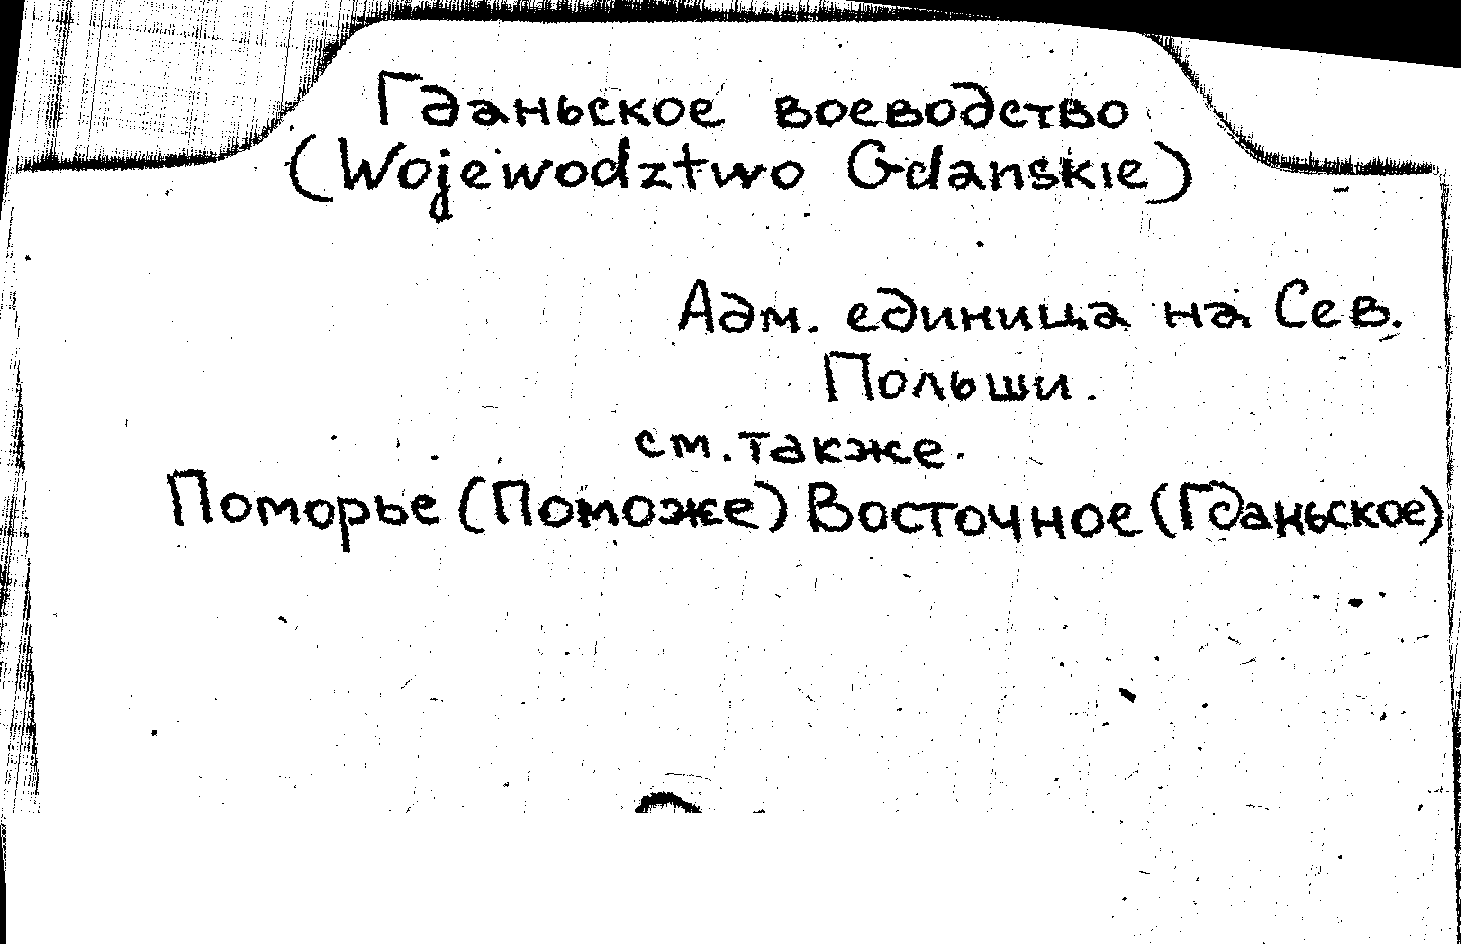 Гданьское воеводство
(Wojewodztwo Gdanskie)
Адм. единица на Сев.
Польши.
см. также.
Поморье (Поможе) Восточное (Гданьское)